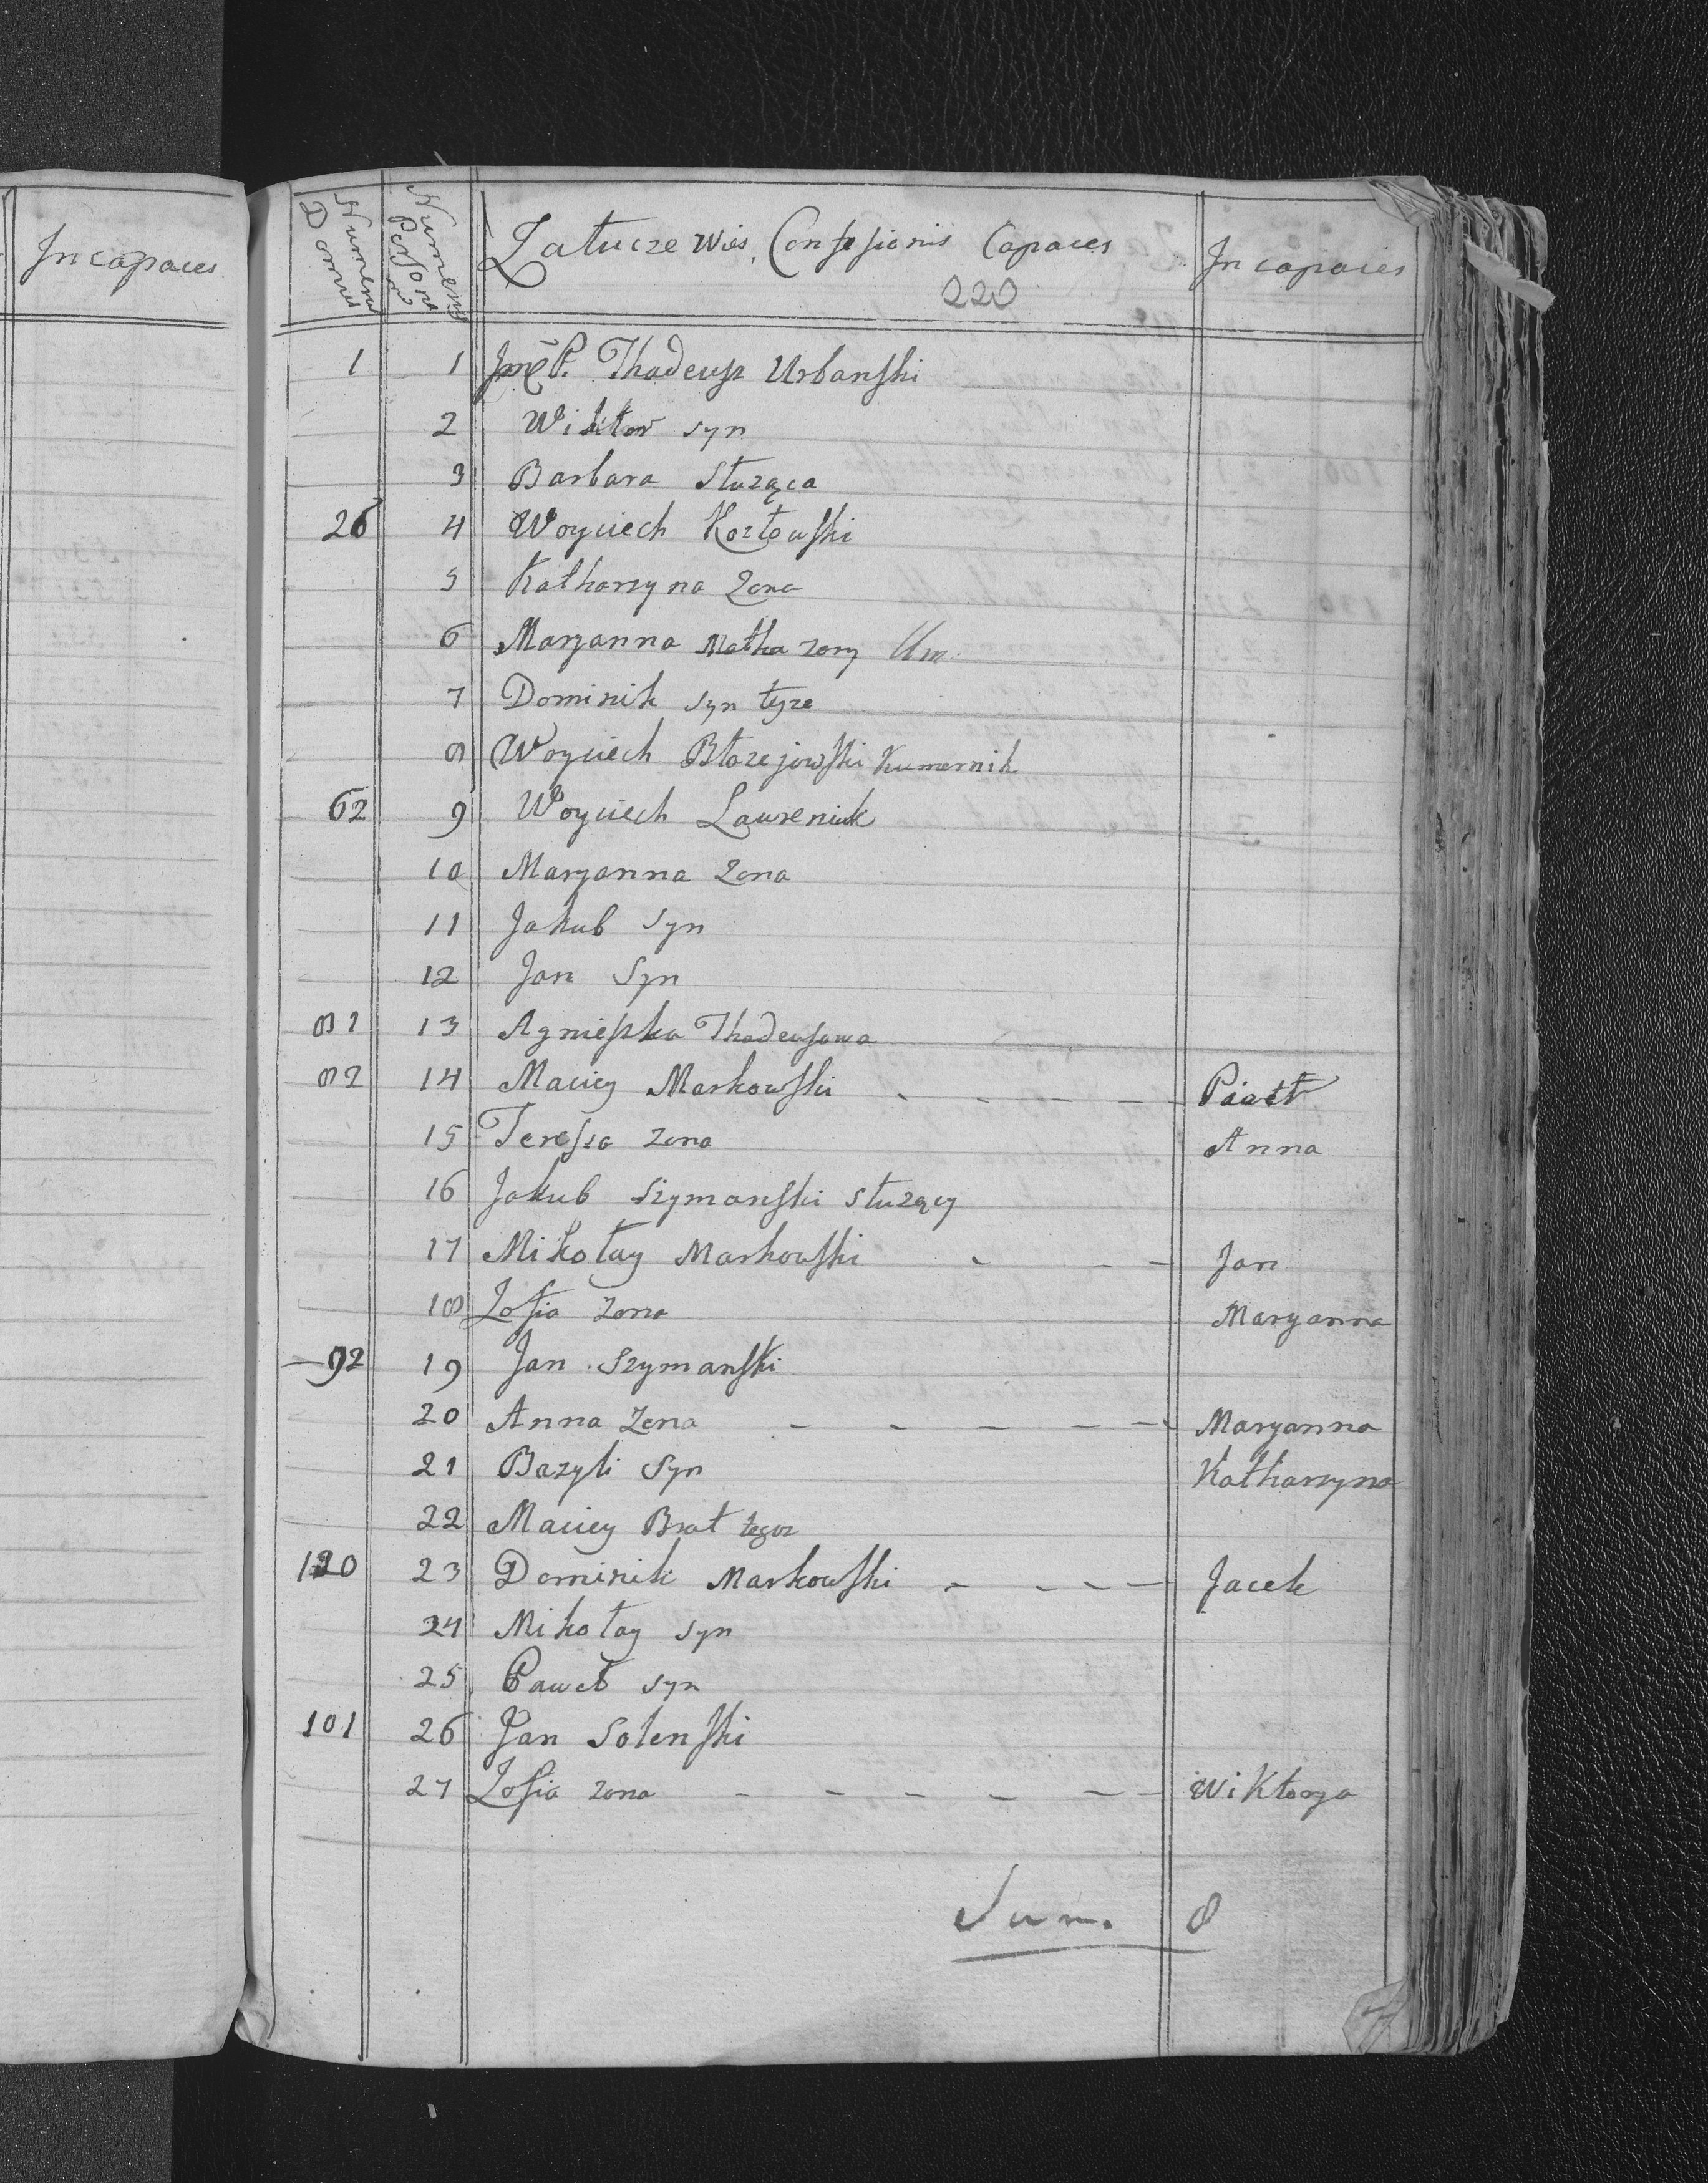 Incapaces
Numerus Domus Numerus Persona Załucze Wieś, Confessionis Capaces Incapaces
220
1 1 Jmć P. Thadeusz Urbanski
2 Wiktor syn
3 Barbara służąca
26 4 Woyciech Kozłowski
5 Katharzyna Zona
6 Maryanna Matka zony Um.
7 Dominik syn teyze
8 Woyciech Błazejowski Kumernik
62 9 Woyciech Lawreniuk
10 Maryanna Zona
11 Jakub syn
12 Jan Syn
81 13 Agnieszka Thadeusowa
82 14 Maciey Markowski - - - - - Piotr
15 Teressa zona Anna
16 Jakub Szymanski służący
17 Mikołay Markowski - - - Jan
18 Zofia zona Maryanna
92 19 Jan Szymanski
20 Anna Zona - - - - - Maryanna
21 Bazyli Syn Katharzyna
22 Maciey Brat tegoz
120 23 Dominik Markowski - - - - Jacek
24 Mikołay syn
25 Paweł syn
101 26 Jan Solenski
27 Zofia zona - - - - - - Wiktorya
Sum. 8